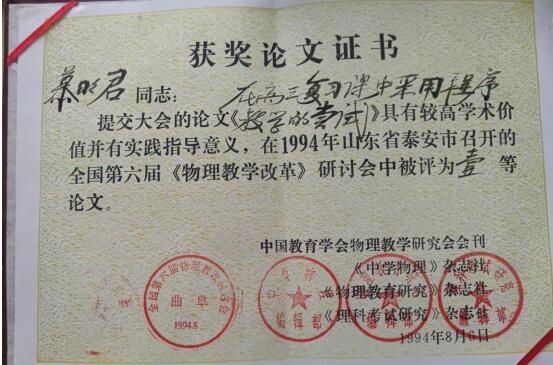 获奖论文证书
慕明君同志:
在高三复习课中采用程序
提交大会的论文《教学的尝试》具有较高学术价
值并有实践指导意义,在1994年山东省泰安市召开的
全国第六届《物理教学改革》研讨会中被评为壹等
论文。
中国教育学会物理教学研究会会刊
《中学物理》杂志社
《物理教育研究》杂志社
《理科考试研究》杂志社
1994年8月6日
曲阜
1994.8
中学物理
编辑部
编辑部
编辑部